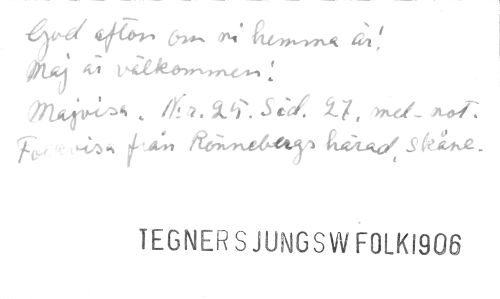 God afton om ni hemma är!
Maj är välkommen!
Majvisa. N:r. 25. Sid. 27, mel-not.
Folkvisa från Rönnebergs härad, Skåne.
TEGNERSJUNGSWFOLK1906